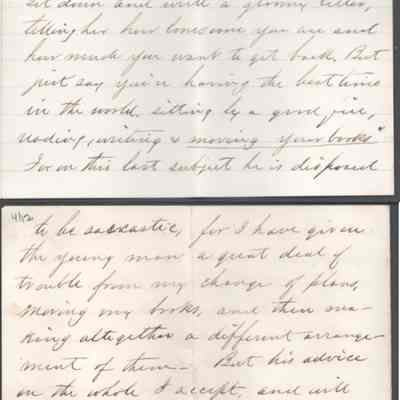 sit down and write a gloomy letter,
telling her how lonesome you are and
how much you want to get back. But
just say you're having the best time
in the world, sitting by a good fire,
reading, writing & moving your books"
For on this last subject he is disposed
4/12
to be sarcastic, for I have given
the young man a great deal of
trouble from my change of plans,
moving my books, and then ma-
king altogether a different arrange-
ment of them - But his advice
on the whole I accept, and will